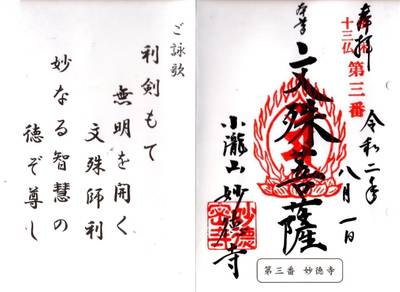 奉拝
十三仏
第三番
令和二年
八月一日
本尊
文殊菩薩
小瀧山 妙徳寺
第三番 妙徳寺
ご詠歌
利剣もて
無明を開く
文殊師利
妙なる智慧の
徳ぞ尊し